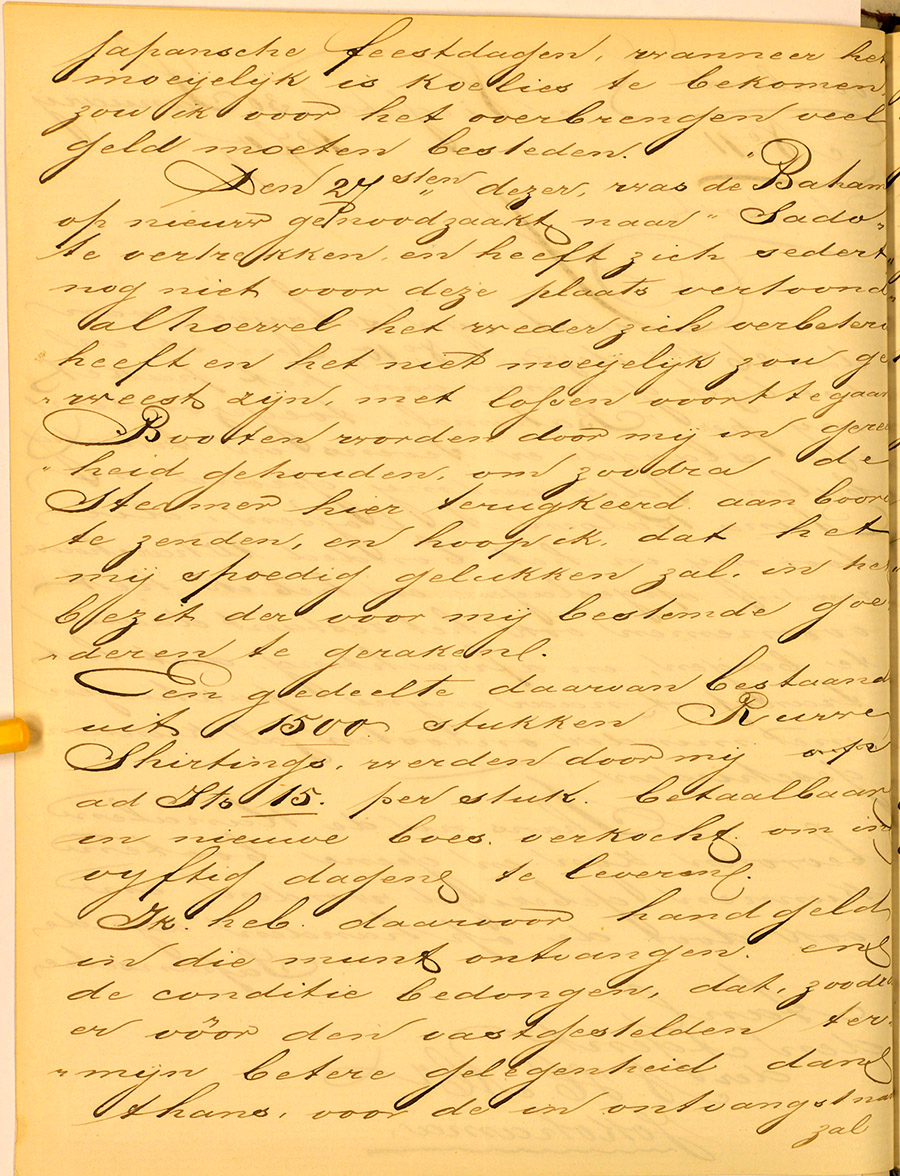 japansche feestdagen, wanneer het
moeijelijk is koelies te bekomen,
zou ik voor het overbrengen veel
geld moeten besteden.
Den 27sten dezer, was de "Baham
op nieuw genoodzaakt naar "Sado"
te vertrekken, en heeft zich sedert
nog niet voor deze plaats vertoond
alhoewel het weder zich verbeterd
heeft en het niet moeijelijk zou ge
"weest zijn, met lossen voort te gaan
Booten worden door mij in geree
"heid gehouden, om zoodra de
Steamer hier terugkeerd aan boord
te zenden, en hoop ik, dat het
mij spoedig gelukken zal, in het
bezit der voor mij bestemde goe
"deren te geraken.
Een gedeelte daarvan bestaand
uit 1500 stukken Ruwe
Shirtings, werden door mij
ad Its 15. per stuk. betaalbaar
in nieuwe boes. verkocht om in
vyftig dagen te leveren.
Ik heb daarvoor handgeld
in die munt ontvangen. en
de conditie bedongen, dat, zoodra
er vóór den vastgestelden ter.
"mijn betere gelegenheid dan
thans, voor de in ontvangstna
zal